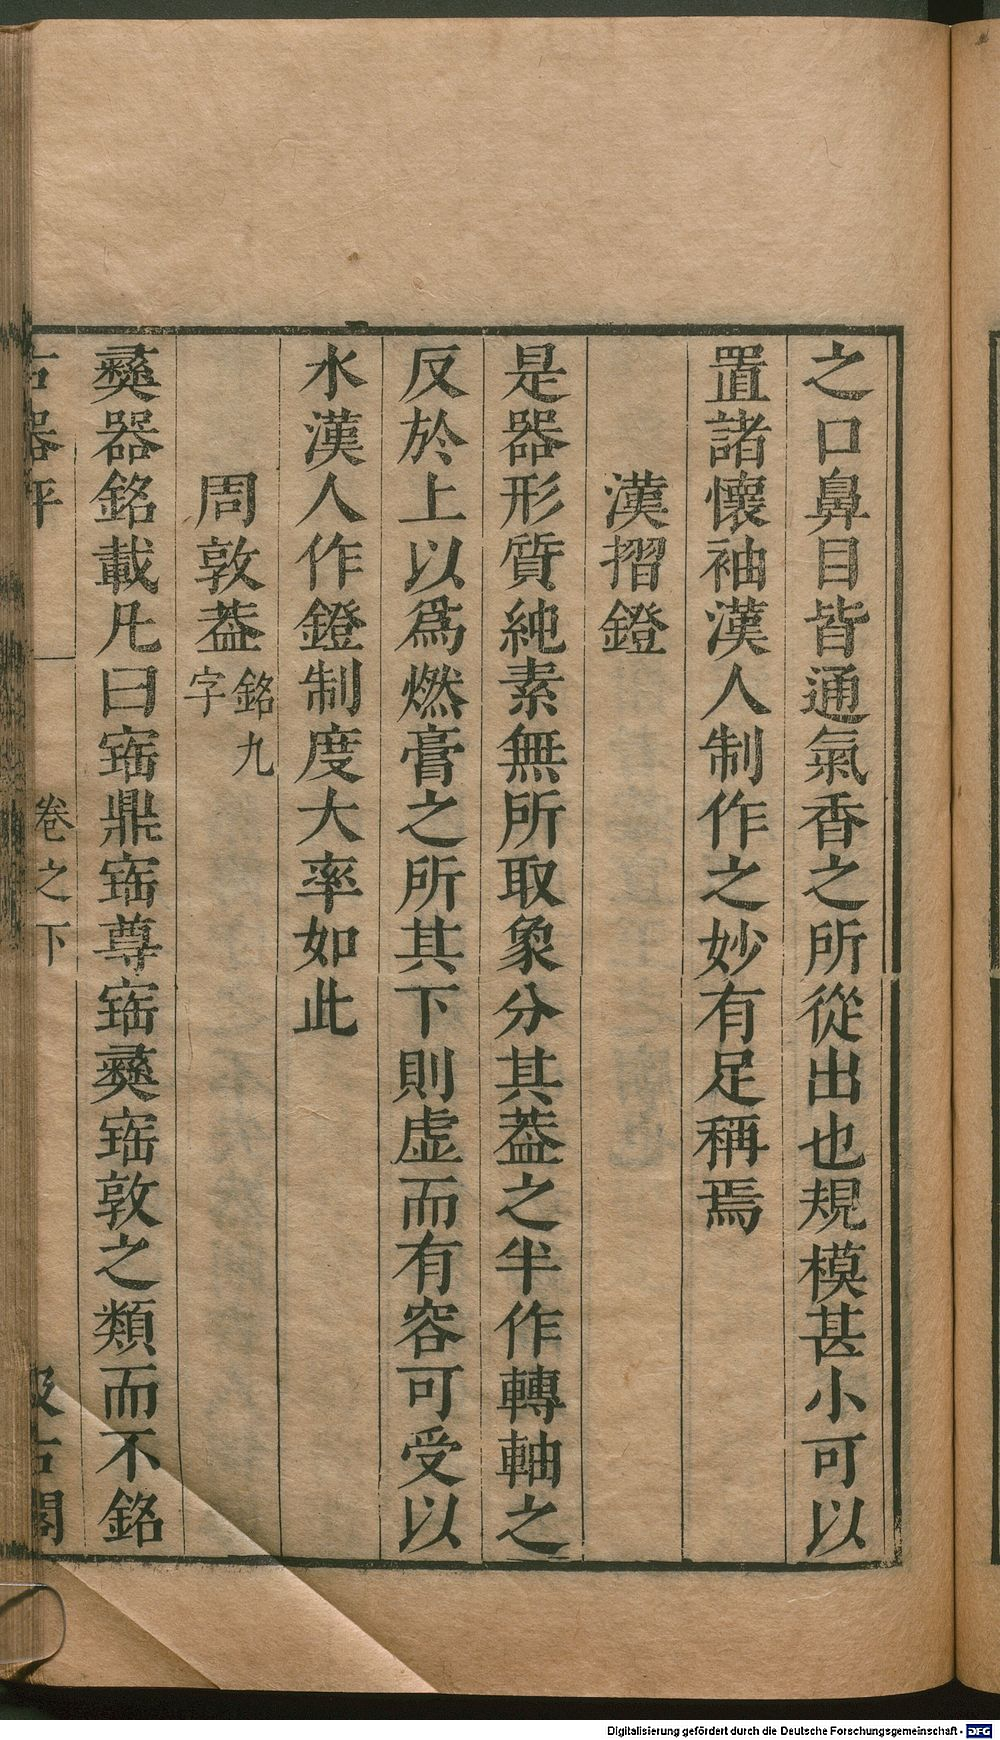 之口鼻目皆通氣香之所從出也規模甚小可以
置諸懷袖漢人制作之妙有足稱焉
漢摺鐙
是器形質純素無所取象分其葢之半作轉軸之
反於上以爲燃膏之所其下則虛而有容可受以
水漢人作鐙制度大率如此
周敦葢銘九字
彝器銘載凡曰寶鼎寶尊寶彝寶敦之類而不銘
古器評 卷之下 汲古閣
Digitalisierung gefördert durch die Deutsche Forschungsgemeinschaft - DFG